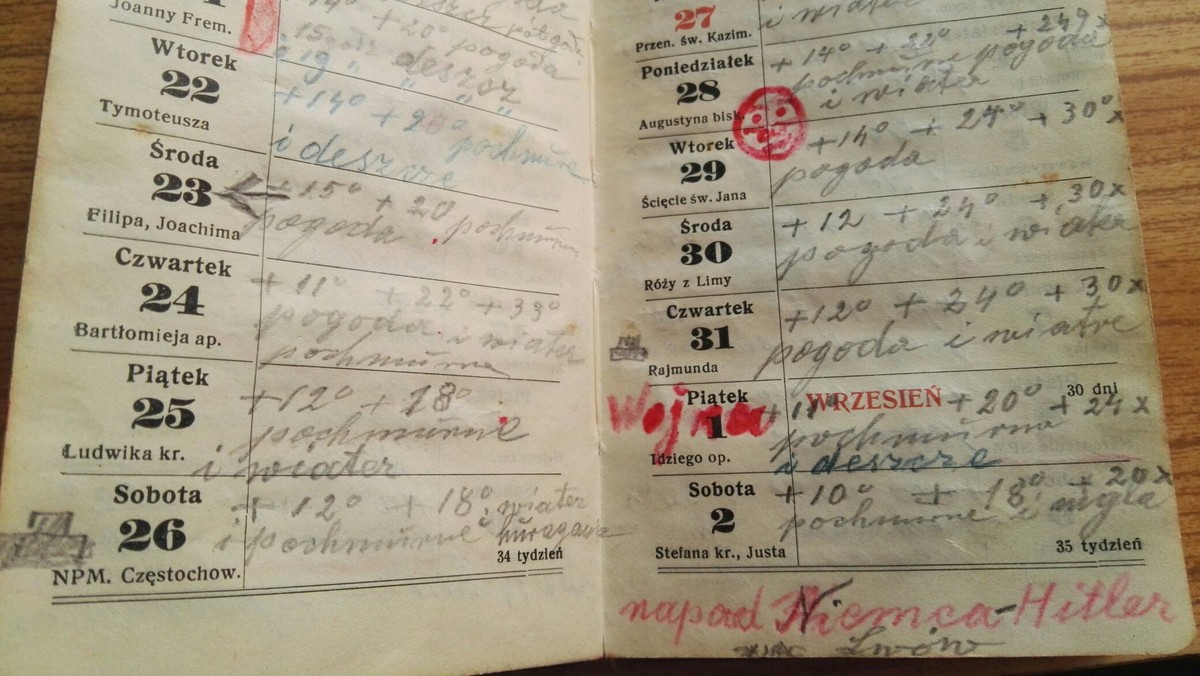 Joanny Frem.
pogoda
15 godz deszcz
i 19 " " "
Wtorek
22
Tymoteusza
+14° +20° pochmurne
i deszcze
Środa
23
Filipa, Joachima
+15° +20
pogoda pochmurne
Czwartek
24
Bartłomieja ap.
+11° +22° +33°
pogoda i wiater
pochmurne
Piątek
25
Ludwika kr.
+12° +18°
pochmurne
i wiater
Sobota
26
NPM. Częstochow.
+12° +18° wiater
i pochmurne i huragania
34 tydzień
27
Przen. św. Kazim.
i wiater
Poniedziałek
28
Augustyna bisk.
+14° +22° +24° x
pochmurne pogoda
i wiater
Wtorek
29
Ścięcie św. Jana
+14° +24° +30° x
pogoda
Środa
30
Róży z Limy
+12 +24° +30 x
pogoda i wiater
Czwartek
31
Rajmunda
+12° +24° +30 x
pogoda i wiatre
WRZESIEŃ
30 dni
Wojna
Piątek
1
Idziego op.
+11° +20° +24 x
pochmurne
i deszcze
Sobota
2
Stefana kr., Justa
+10° +18° +20 x
pochmurne i mgla
35 tydzień
napad Niemca-Hitler
Lwów